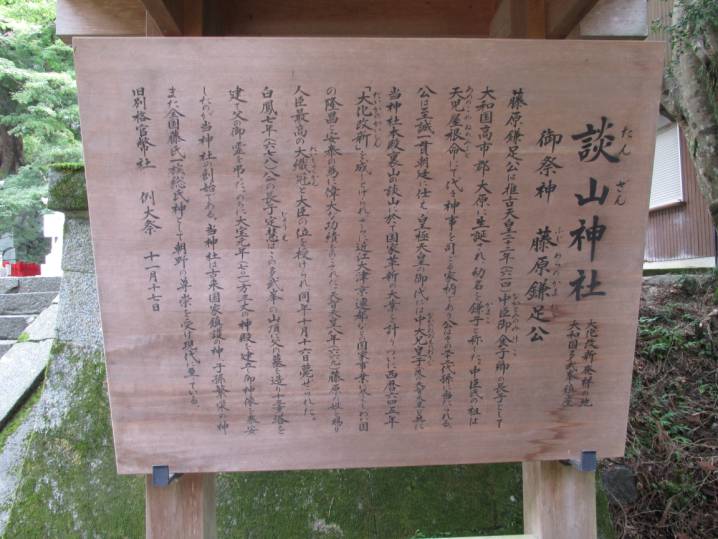 大化改新発祥の地
大和国多武峯鎮座
談山神社
たん ざん
御祭神 藤原鎌足公
ふじわらのかまたり
藤原鎌足公は推古天皇二十二年(六一四)中臣御食子卿の長子として
大和国高市郡大原に生誕され幼名を鎌子と称した。中臣氏の祖は
天児屋根命にして代々神事を司る家柄である。公は
公は至誠一貫朝廷に仕え皇極天皇の御代には中大兄皇子
当神社本殿裏山の談山に於て国家革新の大業を計り 西暦六四五年
「大化改新」を成しとげられ 近江大津京遷都など国家事業の わが国
の隆昌と安泰の為に偉大な功績 天智天皇八年(六六九)藤原の姓を賜り
人臣最高の大織冠と大臣の位を授けられ同年十月十六日薨ぜられた。
白鳳七年(六七八)公の長子定慧は 多武峯の山頂に父の墓を造り十三重塔を
建て父の御霊を 大宝元年(七〇一)方三丈の神殿を建立し御神像を奉安
したのが当神社の創始である。当神社は古来国家鎮護の神 子孫繁栄の神
また全国藤氏一族の総氏神として朝野の尊崇を受け現代に至っている。
旧別格官幣社 例大祭 十一月十七日